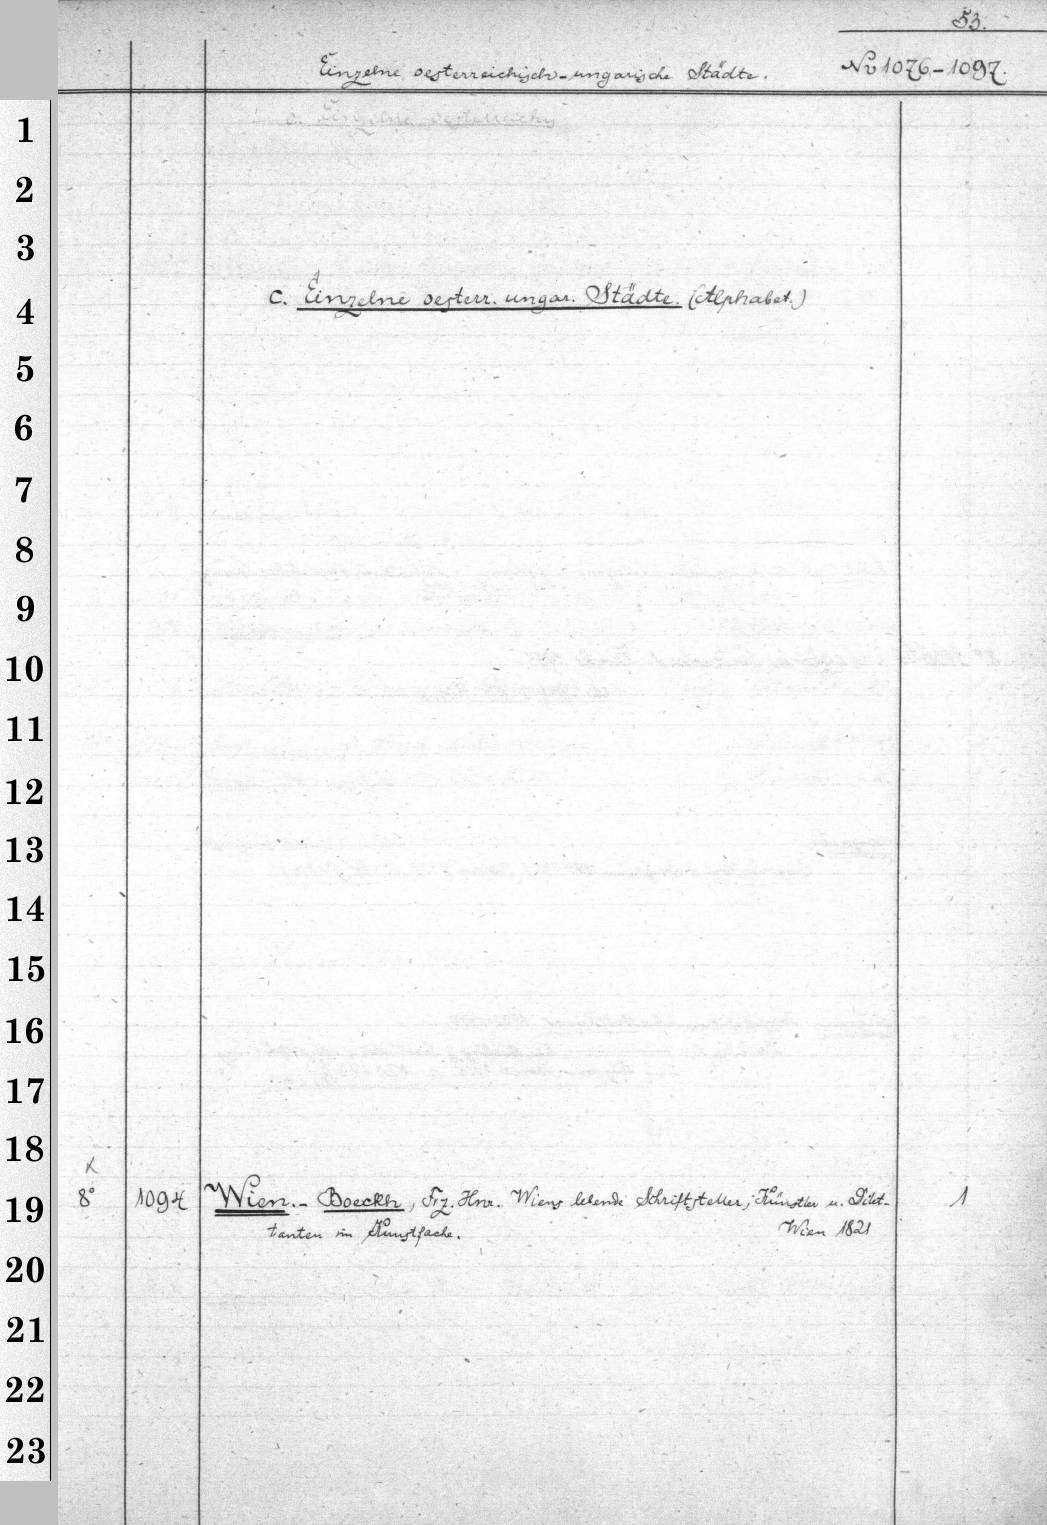 53.
Einzelne oesterreichisch-ungarische Städte.
No 1076-1097.
1
2
3
c. Einzelne oesterr. ungar. Städte. (Alphabet.)
4
5
6
7
8
9
10
11
12
13
14
15
16
17
18
x
8° 1094 Wien. - Boeckh, Frz. Hnr. Wiens lebende Schriftsteller, Künstler u. Dilet- 1
19
tanten im Kunstfache. Wien 1821
20
21
22
23